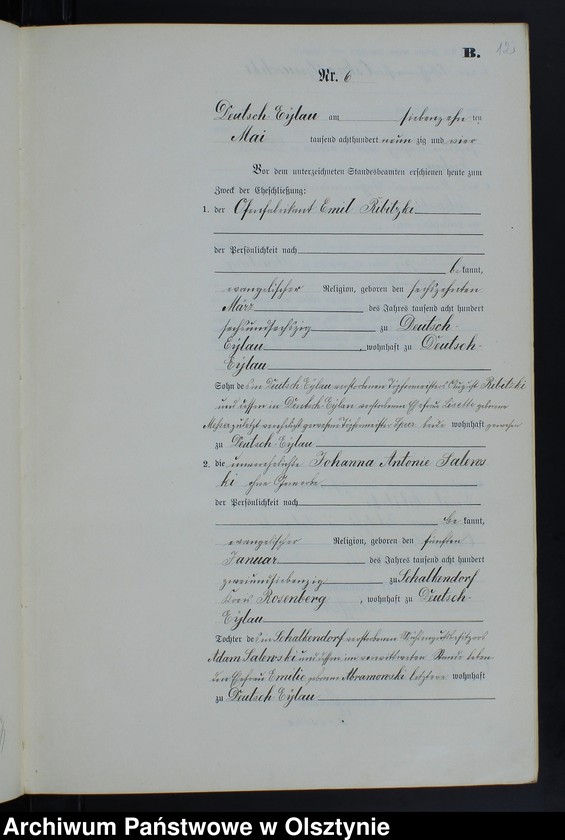 B.
Nr. 6
Deutsch Eylau am siebenzehn ten
Mai tausend achthundert neun zig und vier
Vor dem unterzeichneten Standesbeamten erschienen heute zum
Zweck der Eheschließung:
1. der Ofenfabrikant Emil Ribitzki
der Persönlichkeit nach
be kannt,
evangelischer Religion, geboren den sechszehnten
März des Jahres tausend acht hundert
sechsundsechszig zu Deutsch-
Eylau, wohnhaft zu Deutsch-
Eylau
Sohn des in Deutsch Eylau verstorbenen Töpfermeisters August Ribitzki
und dessen in Deutsch Eylau verstorbenen Ehefrau geborene
zuletzt verehelicht gewesene Töpfermeister beide wohnhaft gewesen
zu Deutsch Eylau
2. die unverehelichte Johanna Antonie Salews
ki ohne Gewerbe
der Persönlichkeit nach
be kannt,
evangelischer Religion, geboren den fünften
Januar des Jahres tausend acht hundert
zweiundsiebenzig zu Schalkendorf
Kreis Rosenberg, wohnhaft zu Deutsch-
Eylau
Tochter des in Schalkendorf verstorbenen Mühlengutsbesitzers
Adam Salewski und dessen im verwittweten Stande leben-
den Ehefrau Emilie geborene Abramowski letztere wohnhaft
zu Deutsch-Eylau
Archiwum Państwowe w Olsztynie